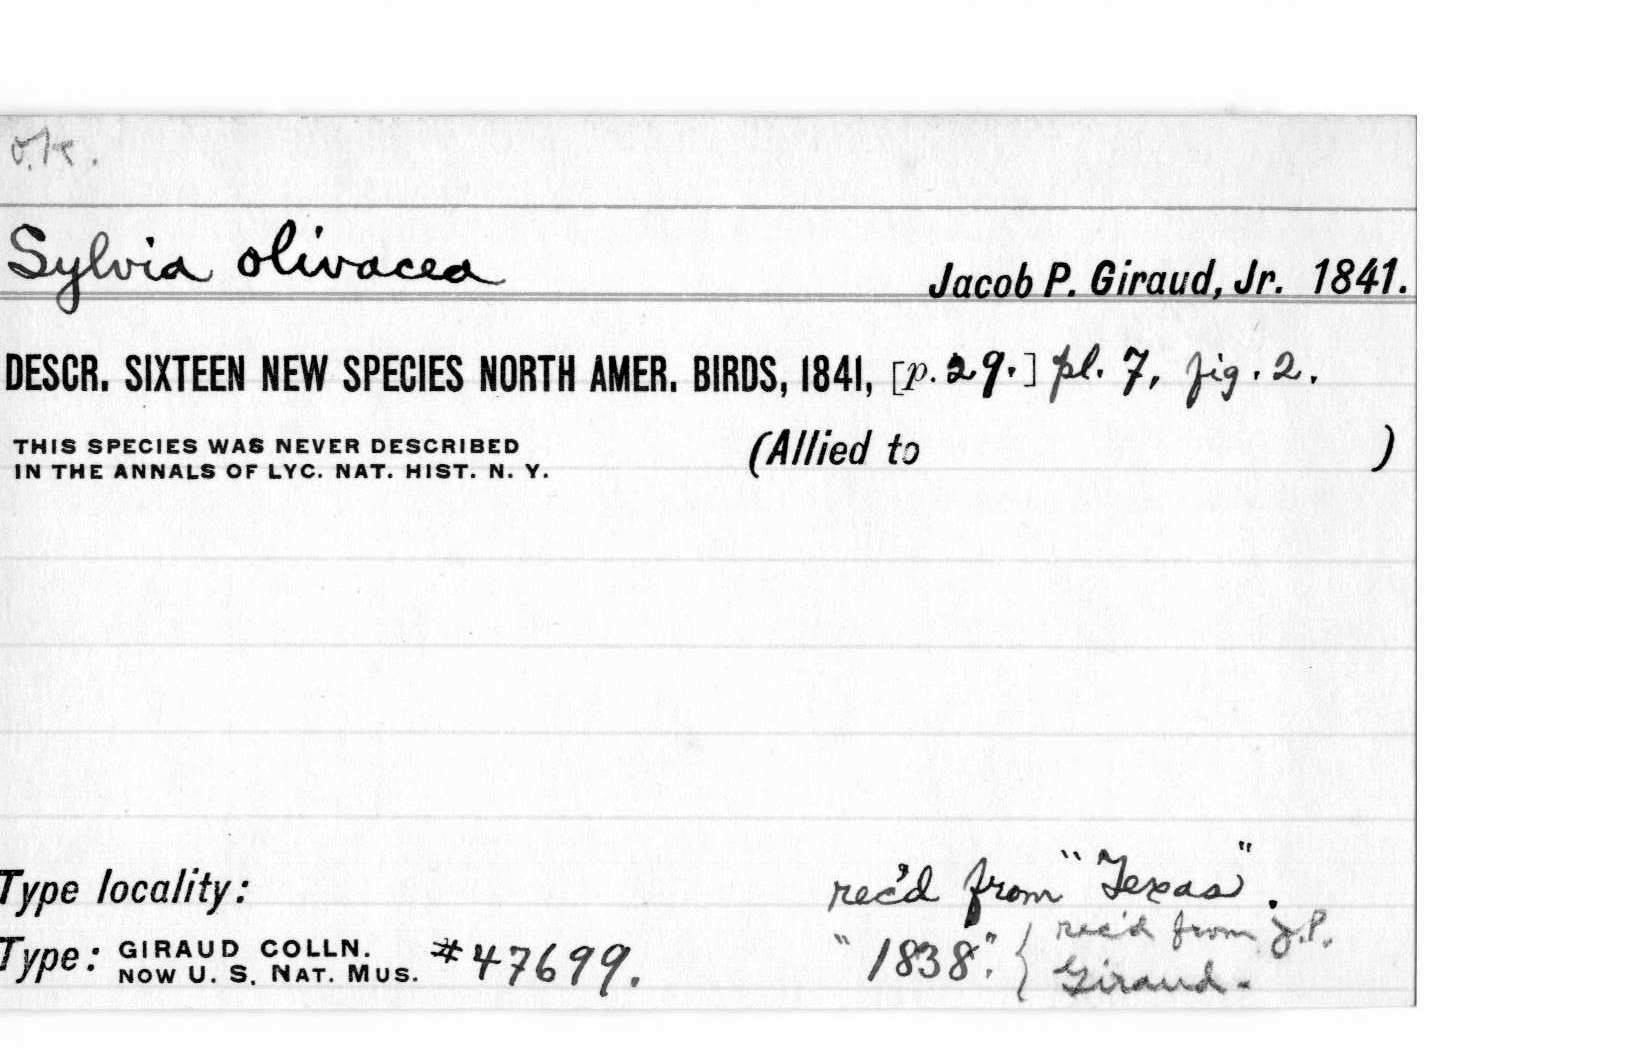 o.k.
Sylvia olivacea Jacob P. Giraud, Jr. 1841.
DESCR. SIXTEEN NEW SPECIES NORTH AMER. BIRDS, 1841, [p. 29.] pl. 7, fig. 2.
THIS SPECIES WAS NEVER DESCRIBED
IN THE ANNALS OF LYC. NAT. HIST. N. Y.
(Allied to )
Type locality: rec'd from "Texas".
Type: GIRAUD COLLN.
NOW U. S. NAT. MUS. #47699. "1838". { rec'd from J.P.
Giraud.